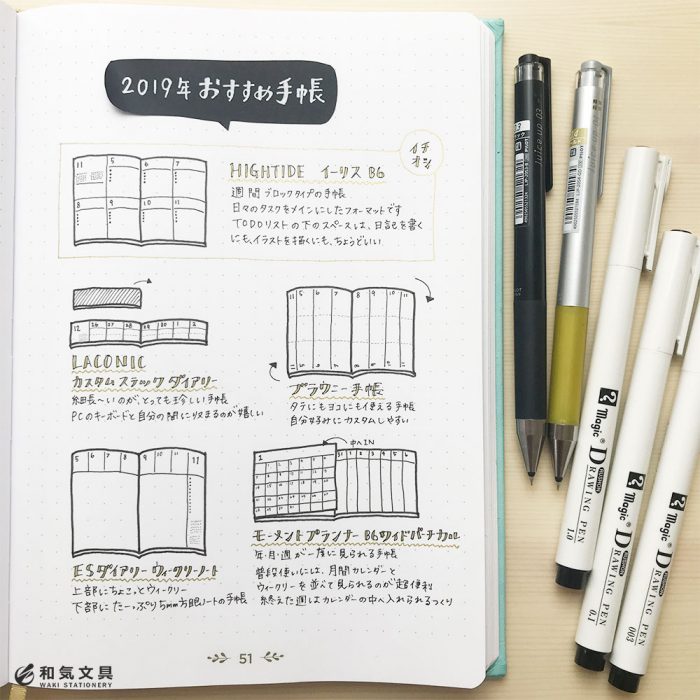 2019年 おすすめ手帳
イチオシ
11 5 6 7
8 9 10 11
HIGHTIDE イーリス B6
週間ブロックタイプの手帳
日々のタスクをメインにしたフォーマットです
TODOリストの下のスペースは、日記を書く
にも、イラストを描くにも、ちょうどいい
12 26 27 28 29 30 1 2
LACONIC
カスタム スティック ダイアリー
細長〜いのが、とっても珍しい手帳
PCのキーボードと自分の間に収まるのが嬉しい
11 5 6 7 8 9 10 11
ブラウニー手帳
タテにもヨコにも使える手帳
自分好みにカスタムしやすい
5 6 7 8 9 10 11
ESダイアリー ウィークリーノート
上部にちょこっとウィークリー
下部にたーっぷり5mm方眼ノートの手帳
中へIN
モーメントプランナー B6ワイドバーチカル
年・月・週が一度に見られる手帳
普段使いには、月間カレンダーと
ウィークリーを並べて見られるのが超便利
終えた週はカレンダーの中へ入れられるつくり
51
和気文具
WAKI STATIONERY
Juice up 03
Magic D DRAWING PEN 1.0
Magic D DRAWING PEN 0.1
Magic D DRAWING PEN 003